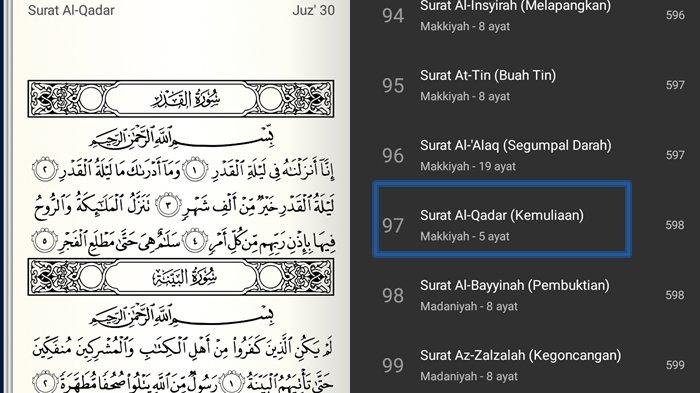 Surat Al-Qadar
Juz' 30
سُورَةُ القَدۡرِ
بِسۡمِ ٱللَّهِ ٱلرَّحۡمَٰنِ ٱلرَّحِيمِ
إِنَّآ أَنزَلۡنَٰهُ فِي لَيۡلَةِ ٱلۡقَدۡرِ ١ وَمَآ أَدۡرَىٰكَ مَا لَيۡلَةُ ٱلۡقَدۡرِ ٢
لَيۡلَةُ ٱلۡقَدۡرِ خَيۡرٞ مِّنۡ أَلۡفِ شَهۡرٖ ٣ تَنَزَّلُ ٱلۡمَلَٰٓئِكَةُ وَٱلرُّوحُ
فِيهَا بِإِذۡنِ رَبِّهِم مِّن كُلِّ أَمۡرٖ ٤ سَلَٰمٌ هِيَ حَتَّىٰ مَطۡلَعِ ٱلۡفَجۡرِ ٥
سُورَةُ البَيِّنَةِ
بِسۡمِ ٱللَّهِ ٱلرَّحۡمَٰنِ ٱلرَّحِيمِ
لَمۡ يَكُنِ ٱلَّذِينَ كَفَرُواْ مِنۡ أَهۡلِ ٱلۡكِتَٰبِ وَٱلۡمُشۡرِكِينَ مُنفَكِّينَ
حَتَّىٰ تَأۡتِيَهُمُ ٱلۡبَيِّنَةُ ١ رَسُولٞ مِّنَ ٱللَّهِ يَتۡلُواْ صُحُفٗا مُّطَهَّرَةٗ ٢
94 Surat Al-Insyirah (Melapangkan) 596
Makkiyah - 8 ayat
95 Surat At-Tin (Buah Tin) 597
Makkiyah - 8 ayat
96 Surat Al-'Alaq (Segumpal Darah) 597
Makkiyah - 19 ayat
97 Surat Al-Qadar (Kemuliaan) 598
Makkiyah - 5 ayat
98 Surat Al-Bayyinah (Pembuktian) 598
Madaniyah - 8 ayat
99 Surat Az-Zalzalah (Kegoncangan) 599
Madaniyah - 8 ayat